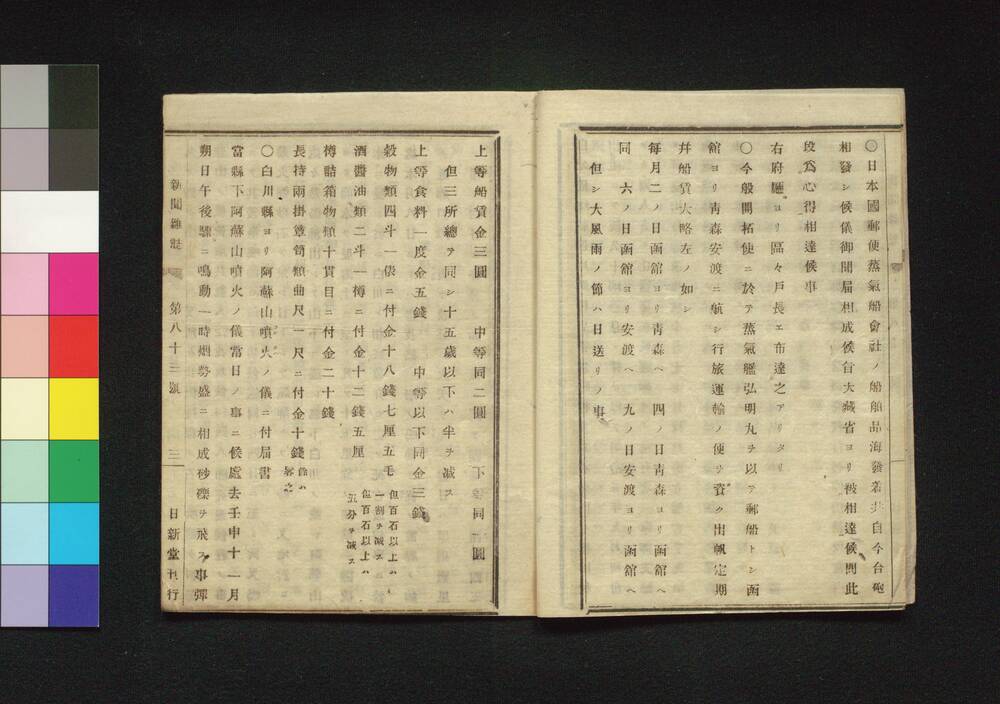 〇日本國郵便蒸氣船會社ノ船舶品海發着共自今台砲
相發シ候儀御聞届相成候旨大藏省ヨリ被相達候間此
段爲心得相達候事
右府廳ヨリ區々戸長エ布達之アリタリ
〇今般開拓使ニ於テ蒸氣艦弘明丸ヲ以テ郵船トシ函
館ヨリ青森安渡ニ航シ行旅運輸ノ便ヲ資ク出帆定期
幷船賃大略左ノ如シ
毎月二ノ日函館ヨリ青森ヘ 四ノ日青森ヨリ函館ヘ
同 六ノ日函館ヨリ安渡ヘ 九ノ日安渡ヨリ函館ヘ
但シ大風雨ノ節ハ日送リノ事
上等船賃金三圓 中等同二圓 下等同一圓
但三所總テ同シ十五歳以下ハ半ヲ减ス
上等食料一度金五錢 中等以下同金三錢
穀物類四斗一俵ニ付金十八錢七厘五毛 但百石以上ハ一割ヲ减ス
酒醬油類二斗一樽ニ付金十二錢五厘 但百石以上ハ五分ヲ减ス
樽詰箱物類十貫目ニ付金二十錢
長持兩掛簞笥類曲尺一尺ニ付金十錢 餘ハ畧之
〇白川縣ヨリ阿蘇山噴火ノ儀ニ付届書
當縣下阿蘇山噴火ノ儀當日ノ事ニ候處去壬申十一月
朔日午後驟ニ鳴動一時烟勢盛ニ相成砂礫ヲ飛ス事彈
新聞雜誌 第八十三號 三 日新堂刊行